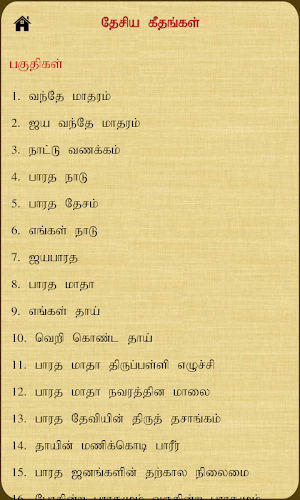 தேசிய கீதங்கள்
பகுதிகள்
1. வந்தே மாதரம்
2. ஜய வந்தே மாதரம்
3. நாட்டு வணக்கம்
4. பாரத நாடு
5. பாரத தேசம்
6. எங்கள் நாடு
7. ஜயபாரத
8. பாரத மாதா
9. எங்கள் தாய்
10. வெறி கொண்ட தாய்
11. பாரத மாதா திருப்பள்ளி எழுச்சி
12. பாரத மாதா நவரத்தின மாலை
13. பாரத தேவியின் திருத் தசாங்கம்
14. தாயின் மணிக்கொடி பாரீர்
15. பாரத ஜனங்களின் தற்கால நிலைமை